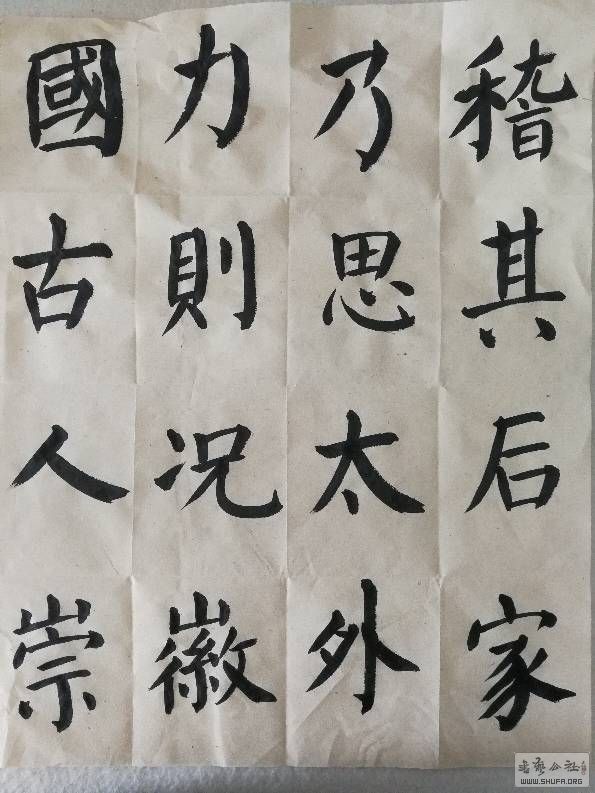 稽其后家
乃思太外
力則况徽
國古人崇
WWW.SHUFA.ORG